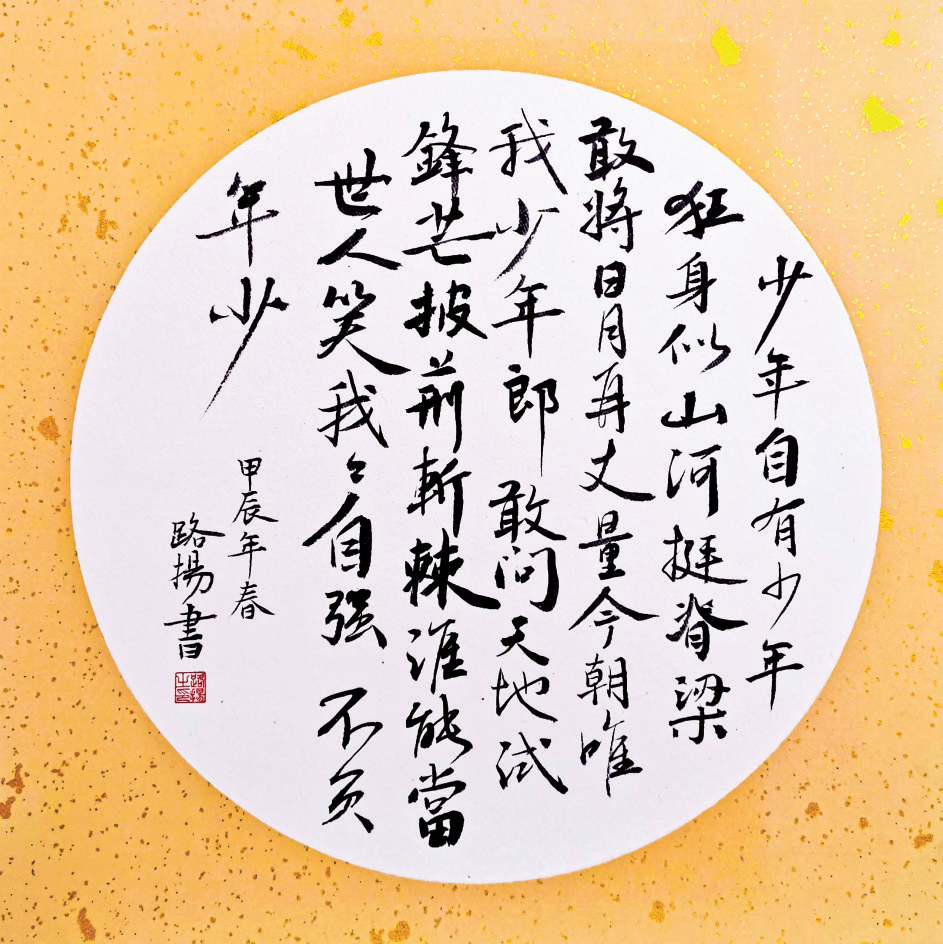 少年自有少年
狂身似山河挺脊梁
敢將日月再丈量今朝唯
我少年郎敢问天地试
鋒芒披荆斬棘谁能當
世人笑我々自强不负
年少
甲辰年春
路揚書
路揚之印